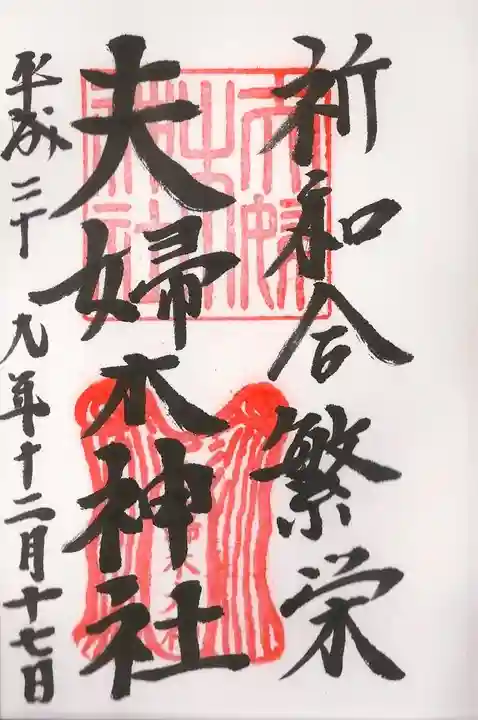 祈和合繁栄
夫婦木神社
平成二十九年十二月十七日